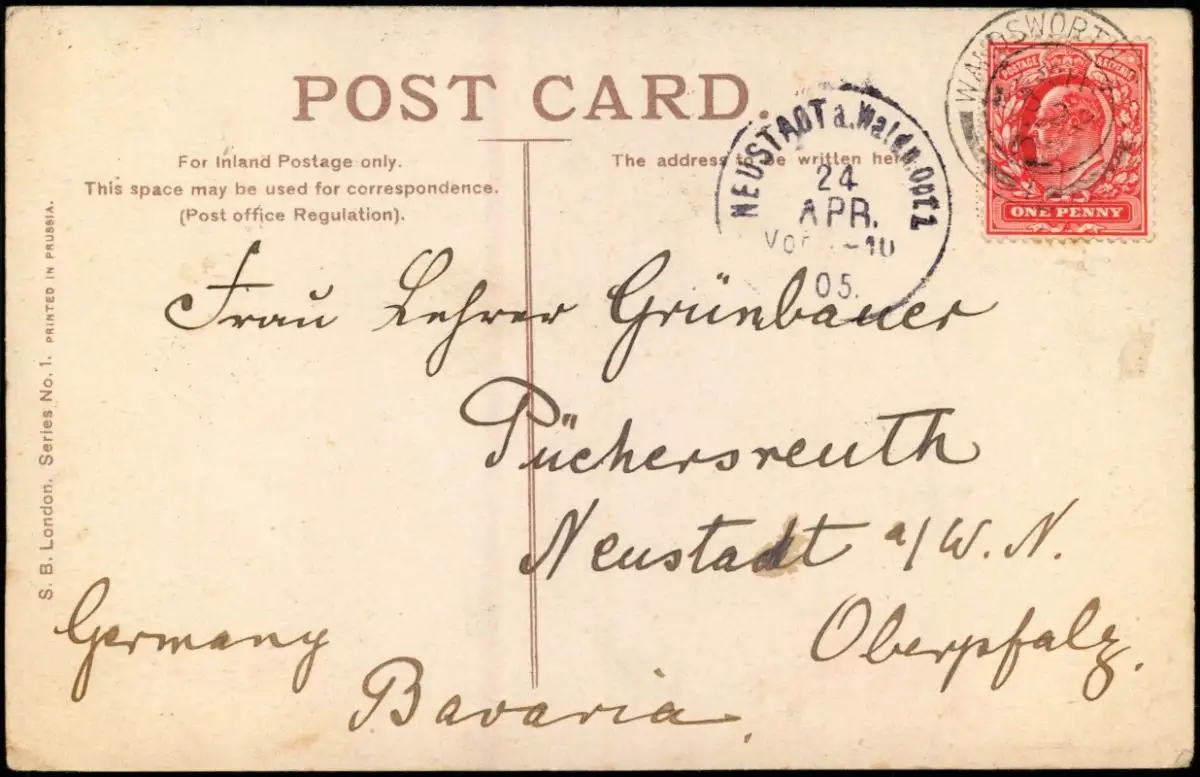 POST CARD.
For Inland Postage only.
This space may be used for correspondence.
(Post office Regulation).
The address to be written here
S. B. London. Series No. 1. PRINTED IN PRUSSIA.
NEUSTADT a.
24
APR.
05.
WANDSWORTH
POSTAGE & REVENUE
ONE PENNY
Frau Lehrer Grünbauer
Püchersreuth
Neustadt a/W. N.
Oberpfalz.
Germany
Bavaria.